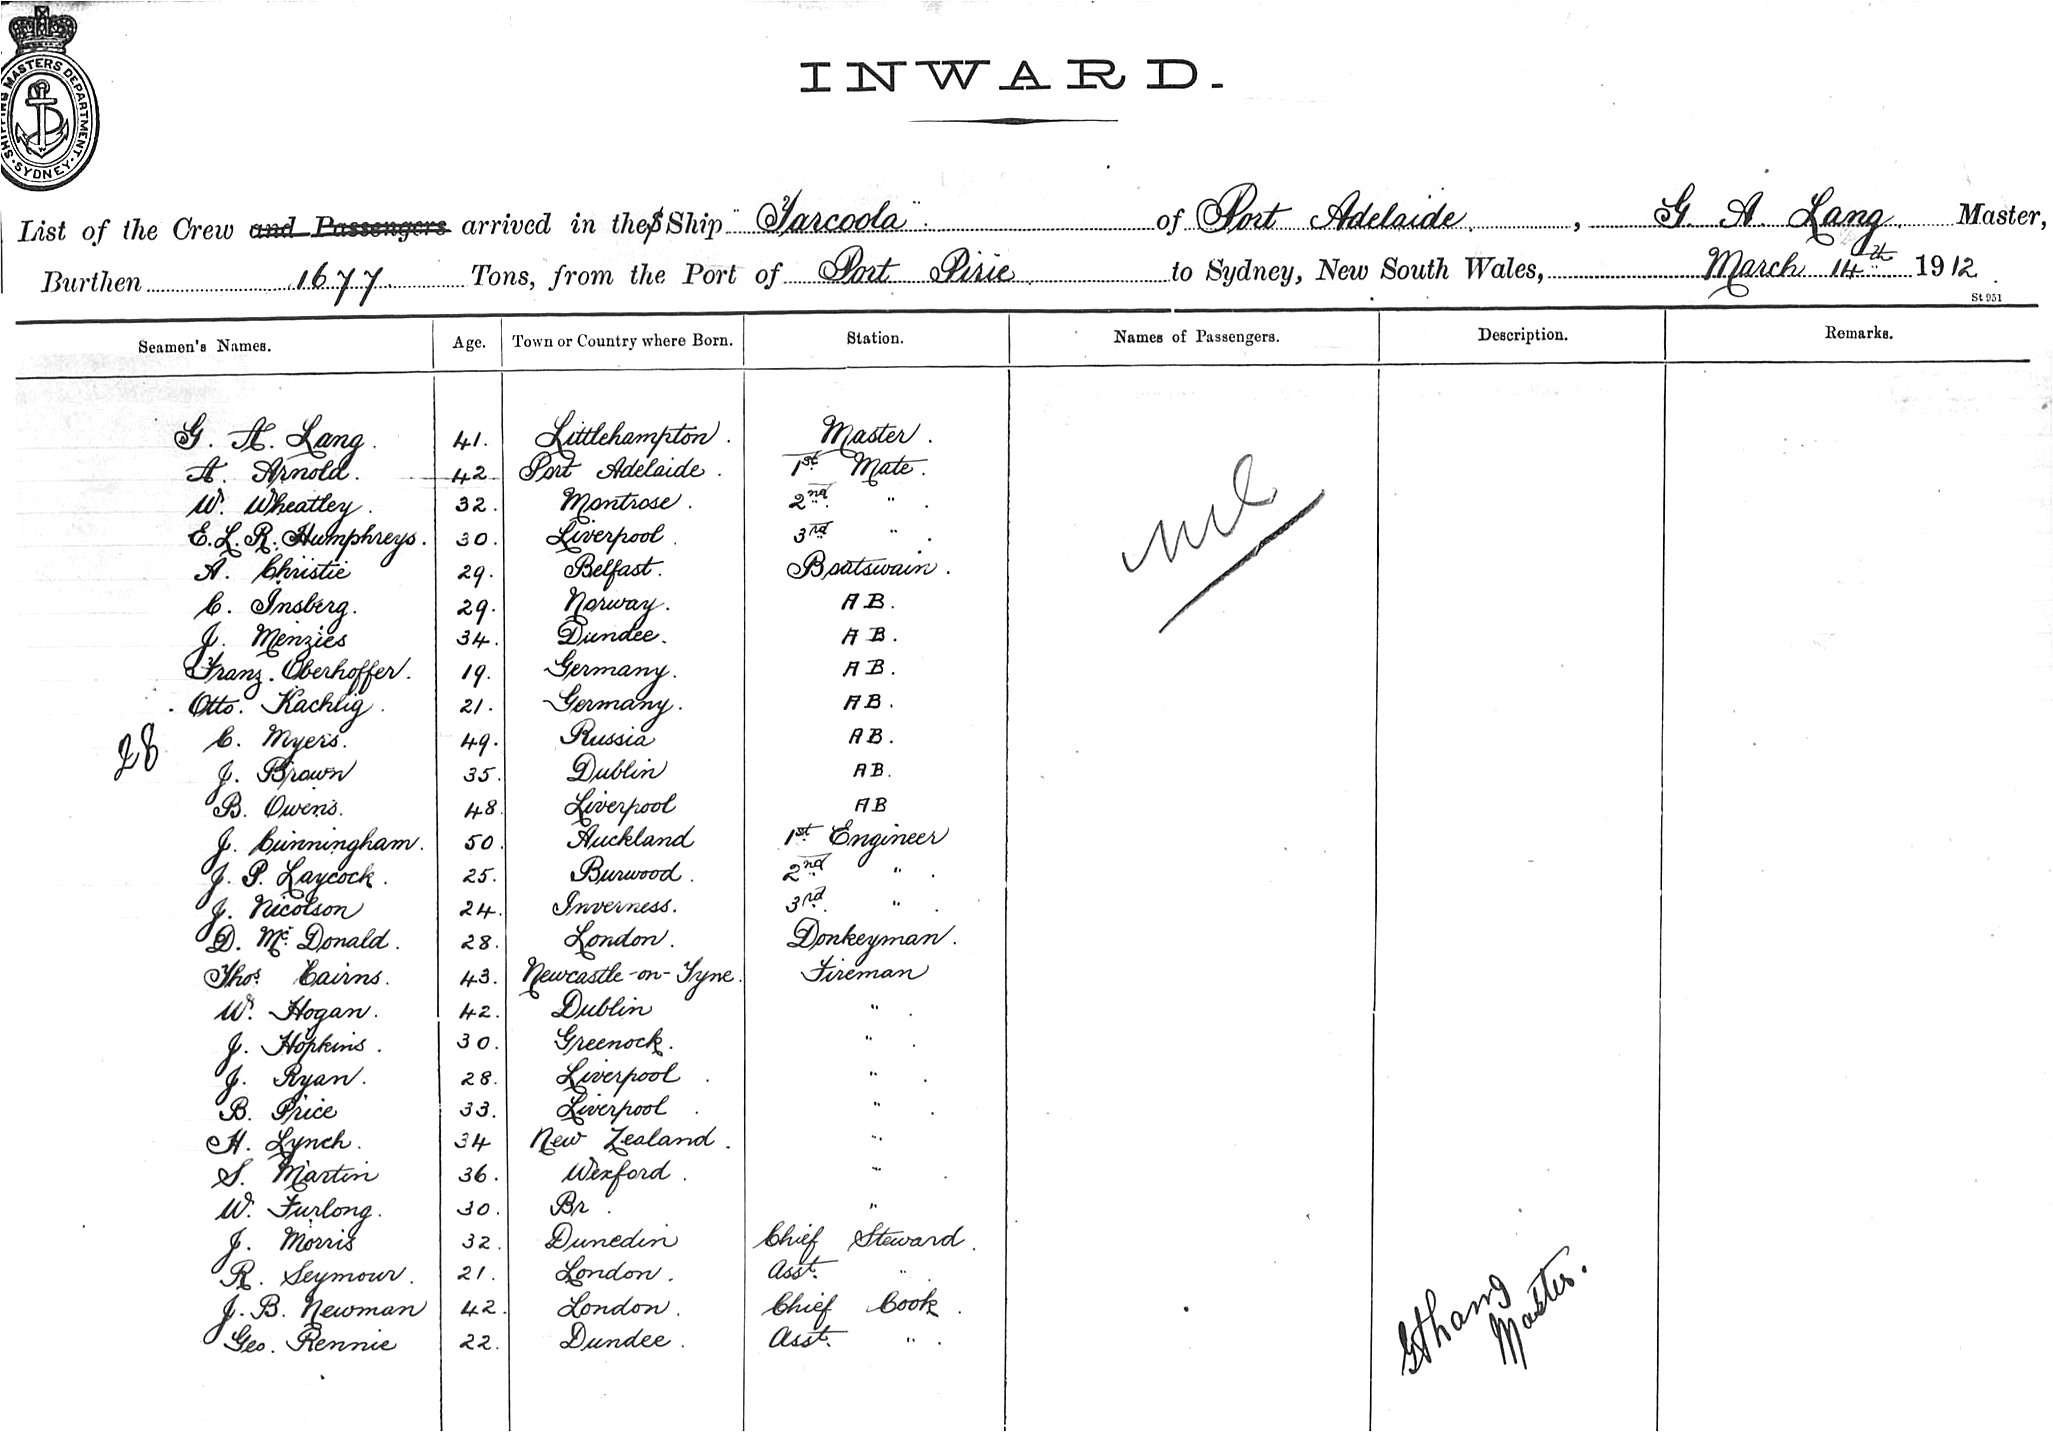 SHIPPING MASTERS DEPARTMENT · SYDNEY ·
INWARD.
List of the Crew and Passengers arrived in the S Ship "Tarcoola" of Port Adelaide, G. A. Lang Master,
Burthen 1677 Tons, from the Port of Port Pirie to Sydney, New South Wales, March 14th 1912
St 951
Seamen's Names. Age. Town or Country where Born. Station. Names of Passengers. Description. Remarks.
G. A. Lang. 41. Littlehampton. Master.
A. Arnold. 42 Port Adelaide. 1st Mate.
W. Wheatley. 32. Montrose. 2nd " .
E. L. R. Humphreys. 30. Liverpool. 3rd " .
A. Christie 29. Belfast. Boatswain.
C. Insberg. 29. Norway. A B.
J. Menzies 34. Dundee. A B.
Franz. Oberhoffer. 19. Germany. A B.
Otto. Kachlig. 21. Germany. A B.
C. Myers. 49. Russia A B.
28
J. Brown 35. Dublin A B.
B. Owens. 48. Liverpool A B
J. Cunningham. 50. Auckland 1st Engineer
J. P. Laycock. 25. Burwood. 2nd " .
J. Nicolson 24. Inverness. 3rd " .
D. Mc Donald. 28. London. Donkeyman.
Thos. Cairns. 43. Newcastle-on-Tyne. Fireman
W. Hogan. 42. Dublin " .
J. Hopkins. 30. Greenock. " .
J. Ryan. 28. Liverpool. " .
B. Price 33. Liverpool. " .
H. Lynch. 34 New Zealand. "
S. Martin 36. Wexford. "
W. Furlong. 30. Br. "
J. Morris 32. Dunedin Chief Steward.
R. Seymour. 21. London. Asst. " .
J. B. Newman 42. London. Chief Cook.
Geo. Rennie 22. Dundee. Asst. " .
nil
G A Lang
Master.